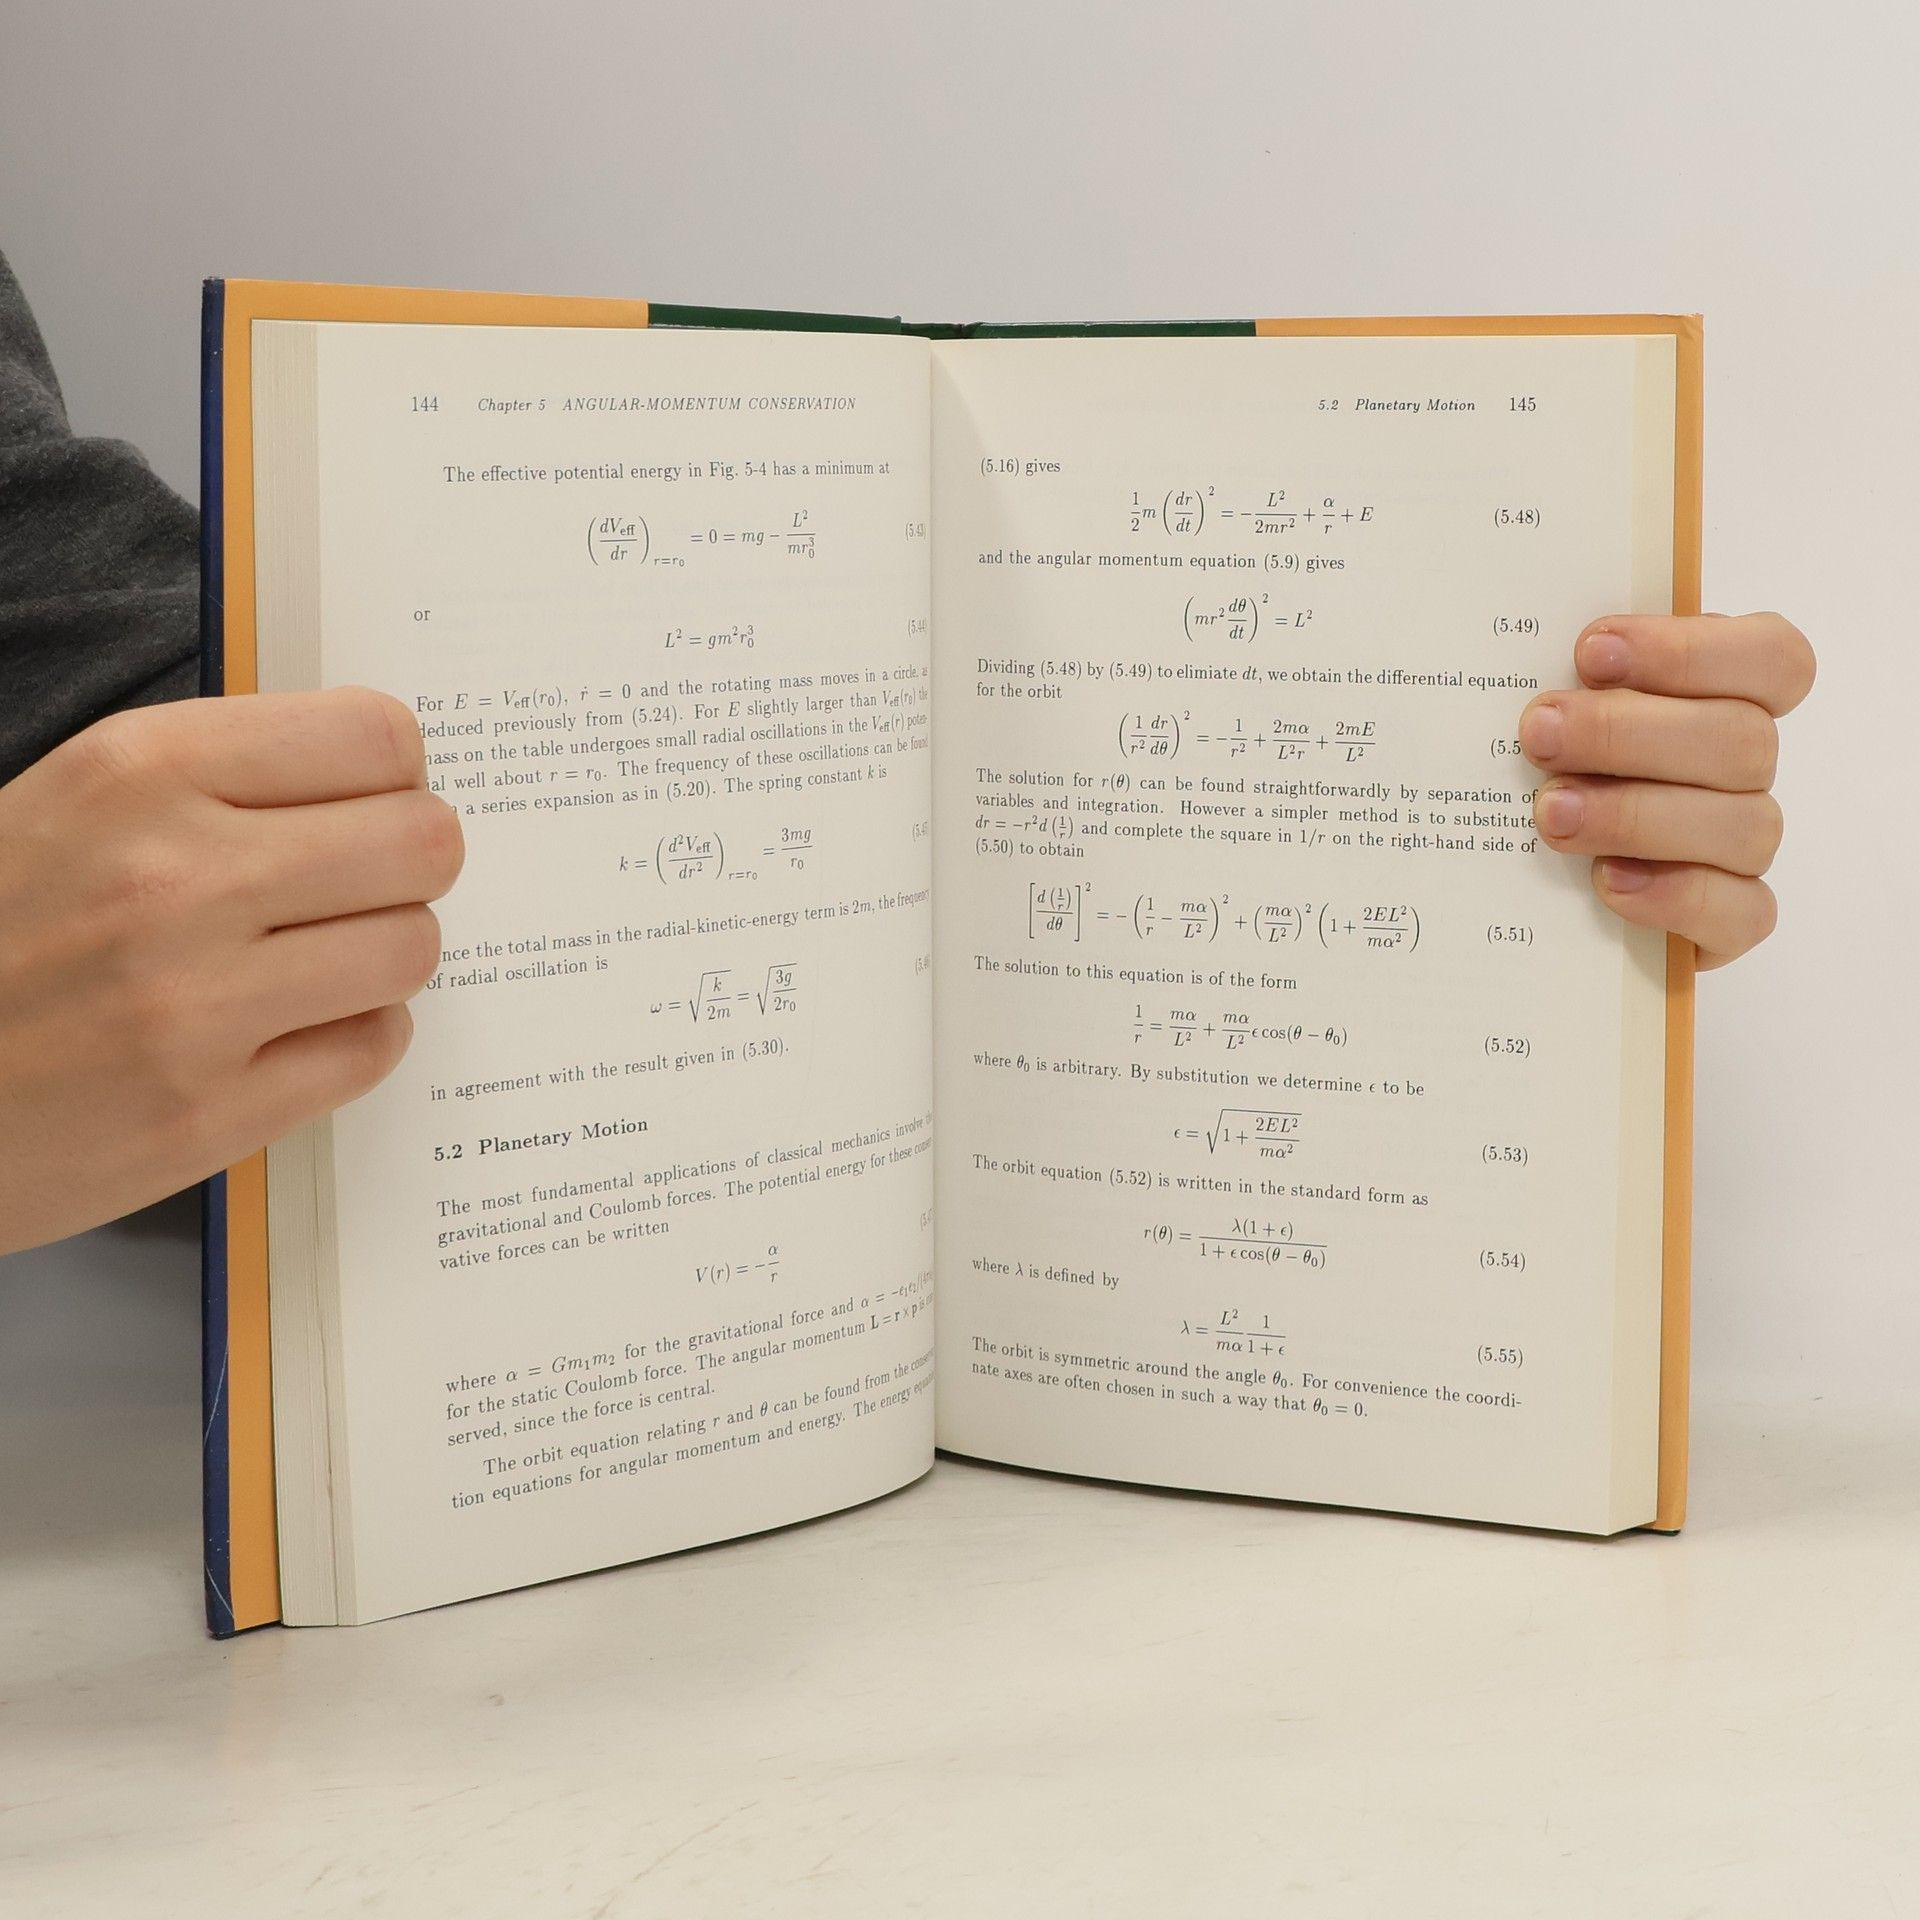 144 Chapter 5 ANGULAR-MOMENTUM CONSERVATION
The effective potential energy in Fig. 5-4 has a minimum at
(dV_eff/dr)_{r=r₀} = 0 = mg − L²/mr₀³ (5.43)
or
L² = gm²r₀³ (5.44)
For E = V_eff(r₀), ṙ = 0 and the rotating mass moves in a circle, as
deduced previously from (5.24). For E slightly larger than V_eff(r₀) the
mass on the table undergoes small radial oscillations in the V_eff(r) poten-
ial well about r = r₀. The frequency of these oscillations can be found
a series expansion as in (5.20). The spring constant k is
k = (d²V_eff/dr²)_{r=r₀} = 3mg/r₀
nce the total mass in the radial-kinetic-energy term is 2m, the frequency
of radial oscillation is
ω = √(k/2m) = √(3g/2r₀)
in agreement with the result given in (5.30).
5.2 Planetary Motion
The most fundamental applications of classical mechanics involve the
gravitational and Coulomb forces. The potential energy for these conser-
vative forces can be written
V(r) = −α/r
where α = Gm₁m₂ for the gravitational force and α = −e₁e₂/(4π
for the static Coulomb force. The angular momentum L = r × p is
served, since the force is central.
The orbit equation relating r and θ can be found from the conserva-
tion equations for angular momentum and energy. The energy equation
5.2 Planetary Motion 145
(5.16) gives
½m(dr/dt)² = −L²/2mr² + α/r + E (5.48)
and the angular momentum equation (5.9) gives
(mr² dθ/dt)² = L² (5.49)
Dividing (5.48) by (5.49) to elimiate dt, we obtain the differential equation
for the orbit
(1/r² dr/dθ)² = −1/r² + 2mα/L²r + 2mE/L² (5.5
The solution for r(θ) can be found straightforwardly by separation of
variables and integration. However a simpler method is to substitute
dr = −r²d(1/r) and complete the square in 1/r on the right-hand side of
(5.50) to obtain
[d(1/r)/dθ]² = −(1/r − mα/L²)² + (mα/L²)²(1 + 2EL²/mα²) (5.51)
The solution to this equation is of the form
1/r = mα/L² + mα/L² ϵ cos(θ − θ₀) (5.52)
where θ₀ is arbitrary. By substitution we determine ϵ to be
ϵ = √(1 + 2EL²/mα²) (5.53)
The orbit equation (5.52) is written in the standard form as
r(θ) = λ(1 + ϵ)/(1 + ϵ cos(θ − θ₀)) (5.54)
where λ is defined by
λ = L²/mα 1/(1 + ϵ) (5.55)
The orbit is symmetric around the angle θ₀. For convenience the coordi-
nate axes are often chosen in such a way that θ₀ = 0.